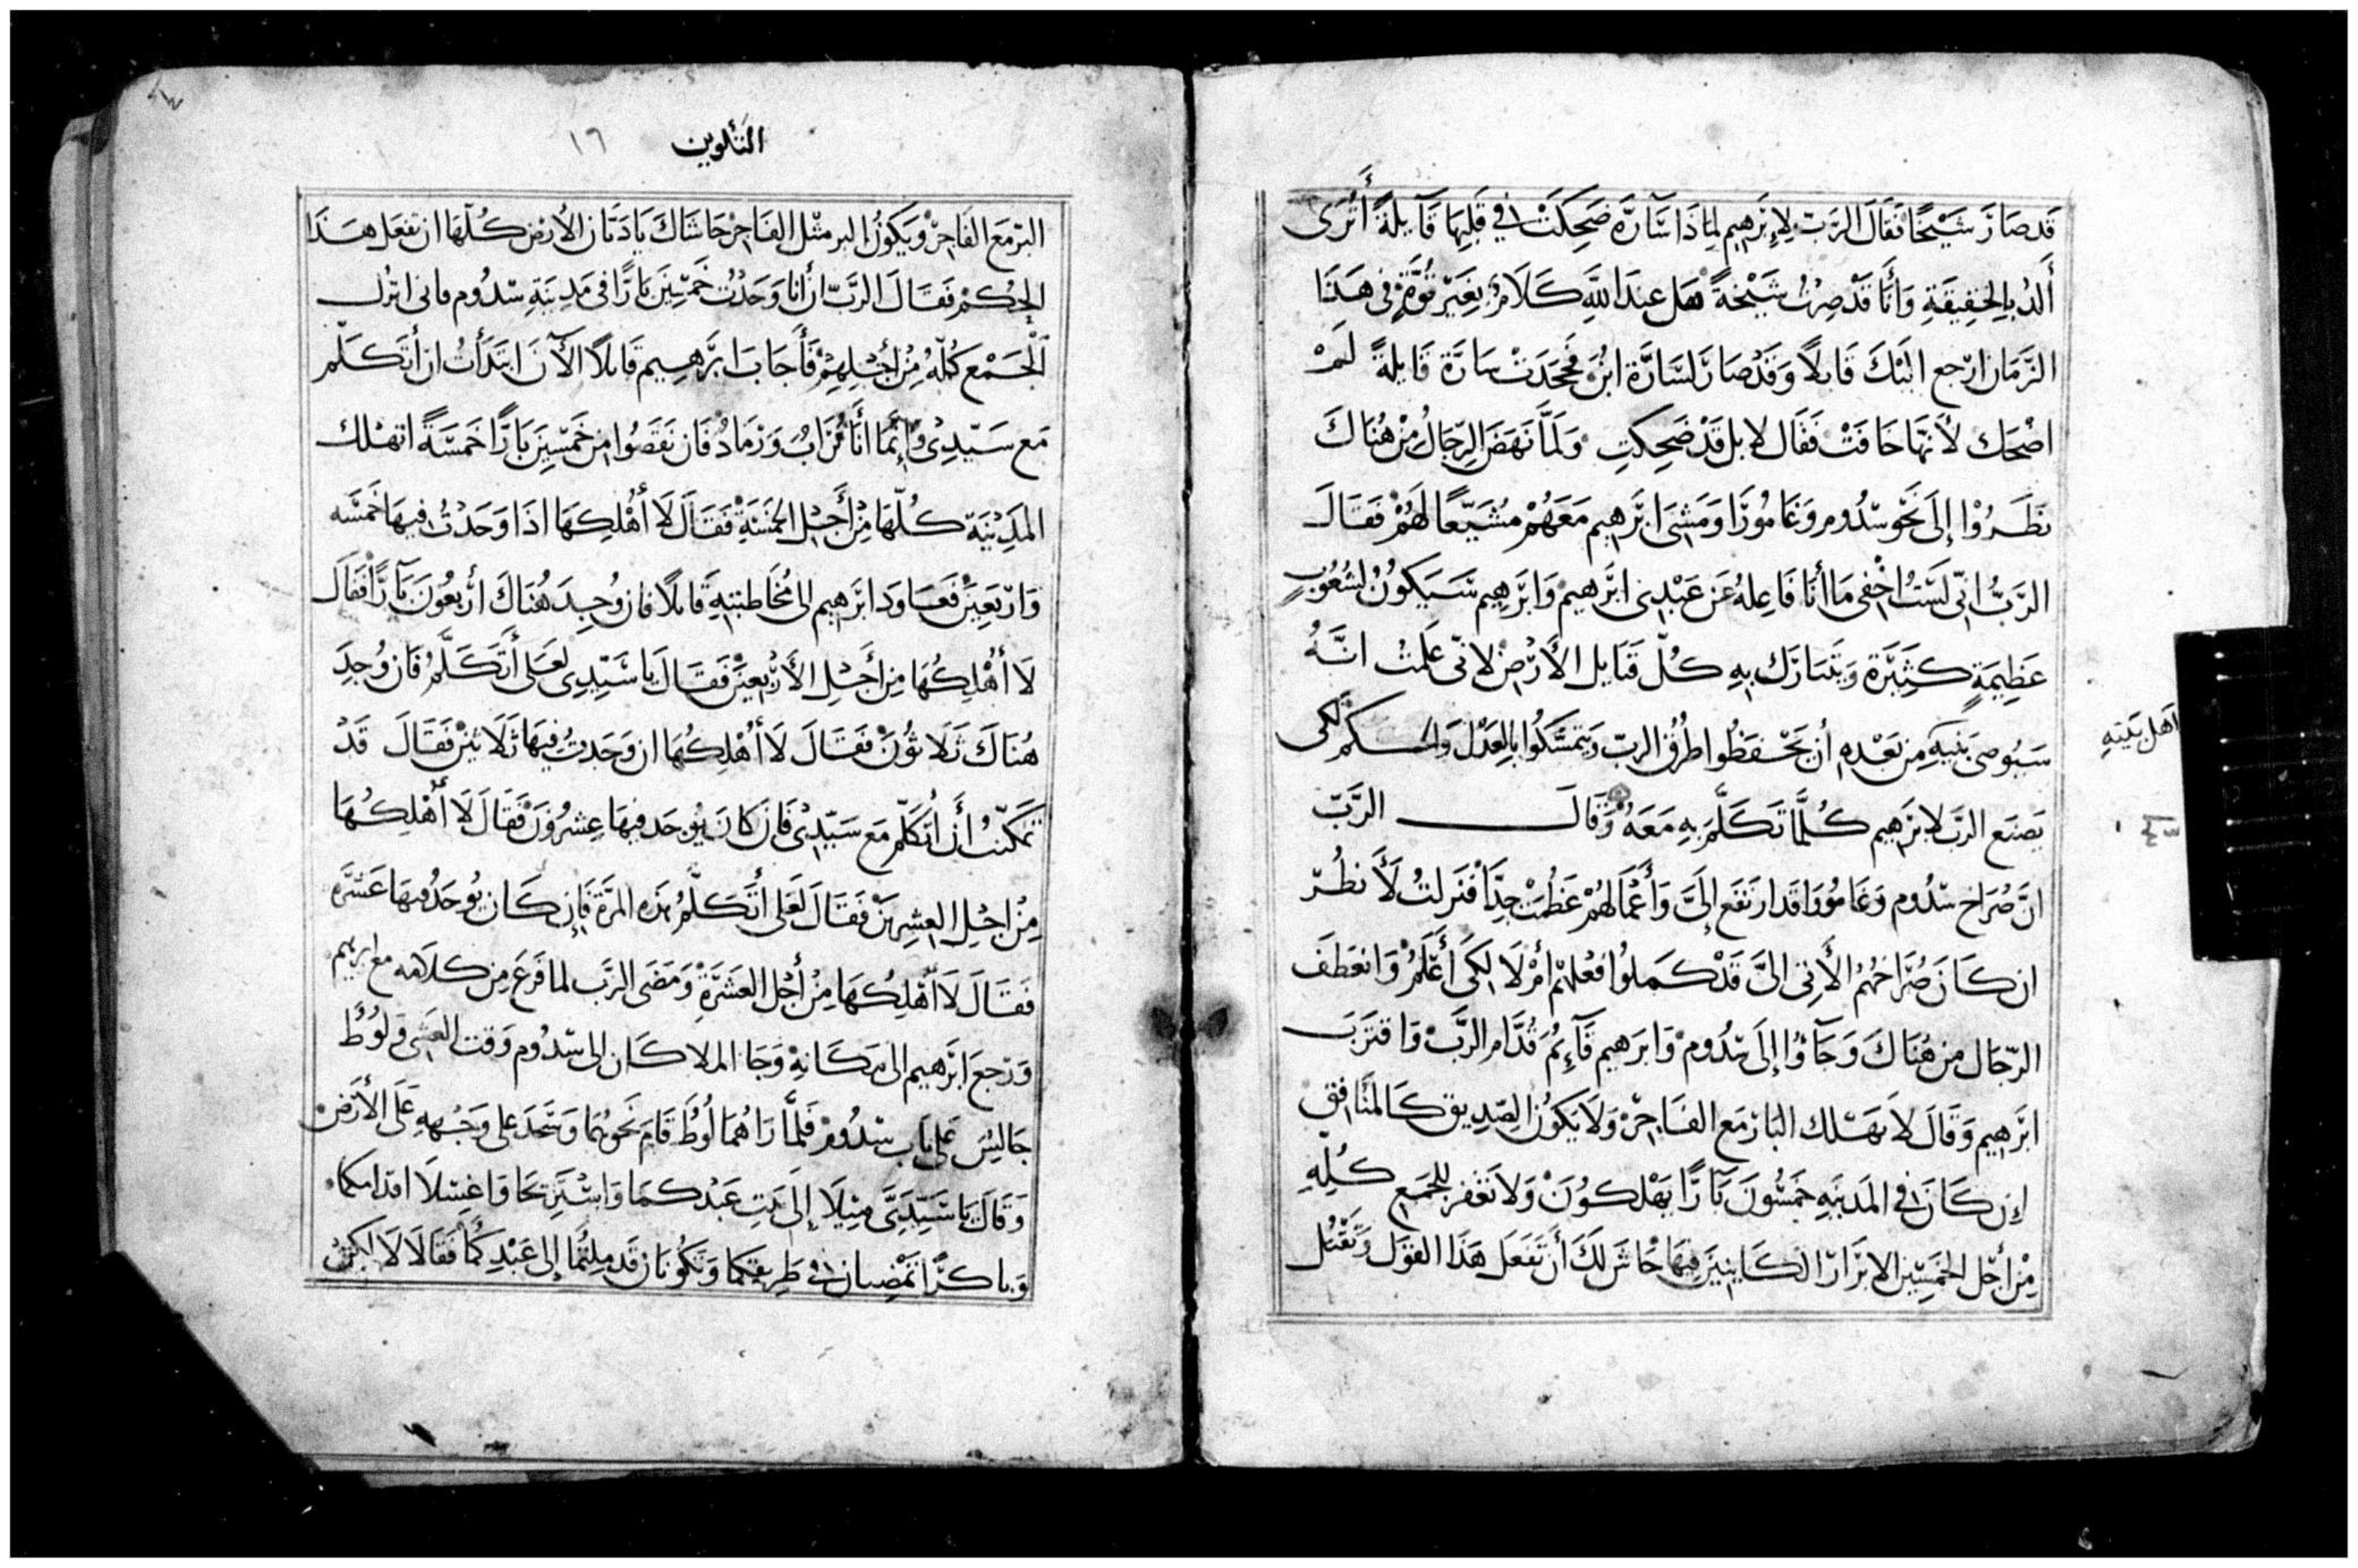 قَد صَارَ شَيْخًا فَقَالَ الرَّبّ لِإبْرَهِيم لِمَاذَا سَآرَّة ضَحِكَتْ فِي قَلبِهَا قَآيِلَةً أَتُرَى
أَلدُ بِالحَقِيقَةِ وَأَنَا قَدْ صِرْتُ شَيْخةً هَل عِندَ اللَّهِ كَلَامٌ بِغَيْرِ قُوَّةٍ فِى هَذَا
الزَّمَان ارْجع اليْكَ قَابلًا وَقَدْ صَارَ لسَارَّة ابْنٌ فَجَحَدَتْ سَارَّة قَايلةً لَمْ
اضْحَك لأَنهَّا خَافَتْ فَقَال لا بل قَدْ ضَحِكتِ وَلَمَّا نَهَضَ الرِّجَالُ مِنْ هُنَاكَ
نظَرُوْا إلَى نَحْو سدُوم وَغَامُورَا وَمَشى ابْرَهِيم مَعَهُمْ مُشَيّعًا لَهُمْ فَقَالَ
الرَّبُّ انِّى لَسْتُ اخْفى مَا أنَا فَاعِلهُ عَن عَبْدِى ابْرَهِيمْ وَابْرَهِيم سَيَكُونُ لشُعُوبٍ
عَظِيمَةٍ كَثِيَرة وَيتَبَارَك بِهِ كُلّ قَبَايل الأَرْض لانّى عَلمتُ انَّهُ
سَيُوصى بَنيهِ مِن بَعْدِهِ أن يَحْفَظُوا طرُق الربّ وَيتمسّكُوا بِالعَدْل وَالحكْم لكى
اَهل بَيتهِ
يَصنَع الربّ لابْرَهِيم كُلَّمَا تَكَلَّمَ بِهِ مَعَهُ وَقَالَ الرَّبّ
انَّ صُرَاخ سدُوم وَغَامُورَا قَد ارتَفَع إلَىَّ وَأَعْمَالهُمْ عَظُمَتْ جِدًّا فَنَزلتُ لأَنظُرّ
ان كَانَ صُرَاخُهُمُ الأَتِى الىَّ قَدْ كَملُوا فعْلهُمْ امْ لَا لِكَى أَعْلَمُ وَانعَطَفَ
الرّجَال مِن هُنَاكَ وَجَآوُا إلَى سدُومْ وَابرَهِيم قَآئِمٌ قُدَّام الرَّبّ وَاقتَرَبَ
ابْرَهِيم وَقَالَ لاَ تَهْلك البَارّ مَع الفَاجِرْ وَلَا يَكُونُ الصّدِيق كَالمنَافق
إن كَانَ فِى المَدينَةِ خَمسُونَ بَآرًّا يَهْلكُوُنَ وَلَا تَغْفر للجَمع كُلِّهِ
مِنْ أجْل الخَمسِين الابْرَارَ الكَاينِين فِيهَا حَاشَ لَكَ أَن تَفعَل هَذَا القَوَل وَتَقْتُل
التكوين ١٦
البرّ مَعَ الفَاجِرْ وَيَكُونُ البر مثْل الفَاجِرْ حَاشَاكَ يَا دَيَّان الأَرْض كُلّهَا ان تفعَل هَذَا
الحُكمْ فَقَالَ الرَّبّ ان أنَا وَجَدْتُ خَمسِينَ بَارًّا فى مَدِينَةِ سدُوم فانى اترُك
الْجَمْع كُلّهُ مِنْ أَجْلِهمْ فَأَجَابَ ابْرَهِيم قَايلًا الآنَ ابتَدَأَتُ ان أتَكَلّم
مَع سَيّدِى وَإِنَّمَا أنَا تُرَابٌ وَرَمَادٌ فَان نَقَصُوا مِن خَمْسِينَ بَارًّا خَمْسَةً اتهْلك
المَدِيْنَةِ كُلّهَا مِنْ أَجْل الخَمْسَةْ فَقَالَ لَا أُهْلِكهَا اذَا وَجَدْتُ فيهَا خَمسَه
وَارْبَعِينْ فَعَاوَدَ ابْرَهِيم الى مُخَاطبتِهِ قَايلًا فان وُجِدَ هُنَاكَ أرْبعُونَ بَآرًّا فَقَال
لَا أُهْلِكهَا مِن أَجْلِ الأَرْبعِينْ فَقَالَ يَا سَيِّدِى لعَلى أَتَكَلَّمُ فَان وُجِدَ
هُنَاكَ ثَلَاثوُنَ فَقَالَ لَا أُهْلِكُهَا ان وَجَدتُ فِيهَا ثَلَاثِينْ فَقَالَ قَدْ
تمكّنتُ أن أَتكَلّم مَع سَيّدِى فَان كَانَ يوُجَد فِيهَا عِشرُونَ فَقَالَ لَا أُهْلِكُهَا
مِنْ اجْلِ العِشرِينْ فَقَالَ لَعَلى أتَكَلَّمُ هَذِه المَرَّة فَإِن كَان يُوجَدُ فيهَا عَشَرَه
فَقَالَ لَا أُهْلِكُهَا مِنْ أَجْل العَشَرَةْ وَمَضَى الرَّب لما فَرَغ مِن كلَامَه مع ابرهيم
وَرَجعَ ابْرَهِيم الى مَكَانِهْ وَجَا الملَاكَان الى سدُوم وَقت العَشى وَلُوطُ
جَالِسٌ عَلى بَاب سدُومْ فَلمَّا رَاهُمَا لُوطُ قَامَ نَحْوهُمَا وَسَجَدَ عَلى وَجْهِهِ عَلى الأَرْضْ
وَقَالَ يَا سَيّدَىَّ مِيلَا إلَى بَيتِ عَبْدكمَا وَاسْتَرِيحَا وَاغسِلَا اقدَامكمَا
وَبَاكرًا تمْضِيان فِى طَرِيقِكمَا وَتَكُونَان قَد مِلتُمَا إلى عَبْدِكُمَا فَقَالَا لَا لَكِنْ